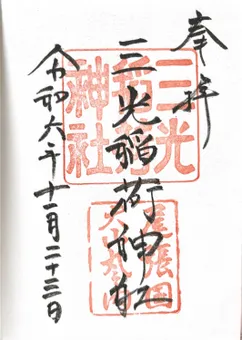 奉拝
三光稲荷神社
令和六年十一月二十三日
三光稲荷神社
尾張国犬山丸の内